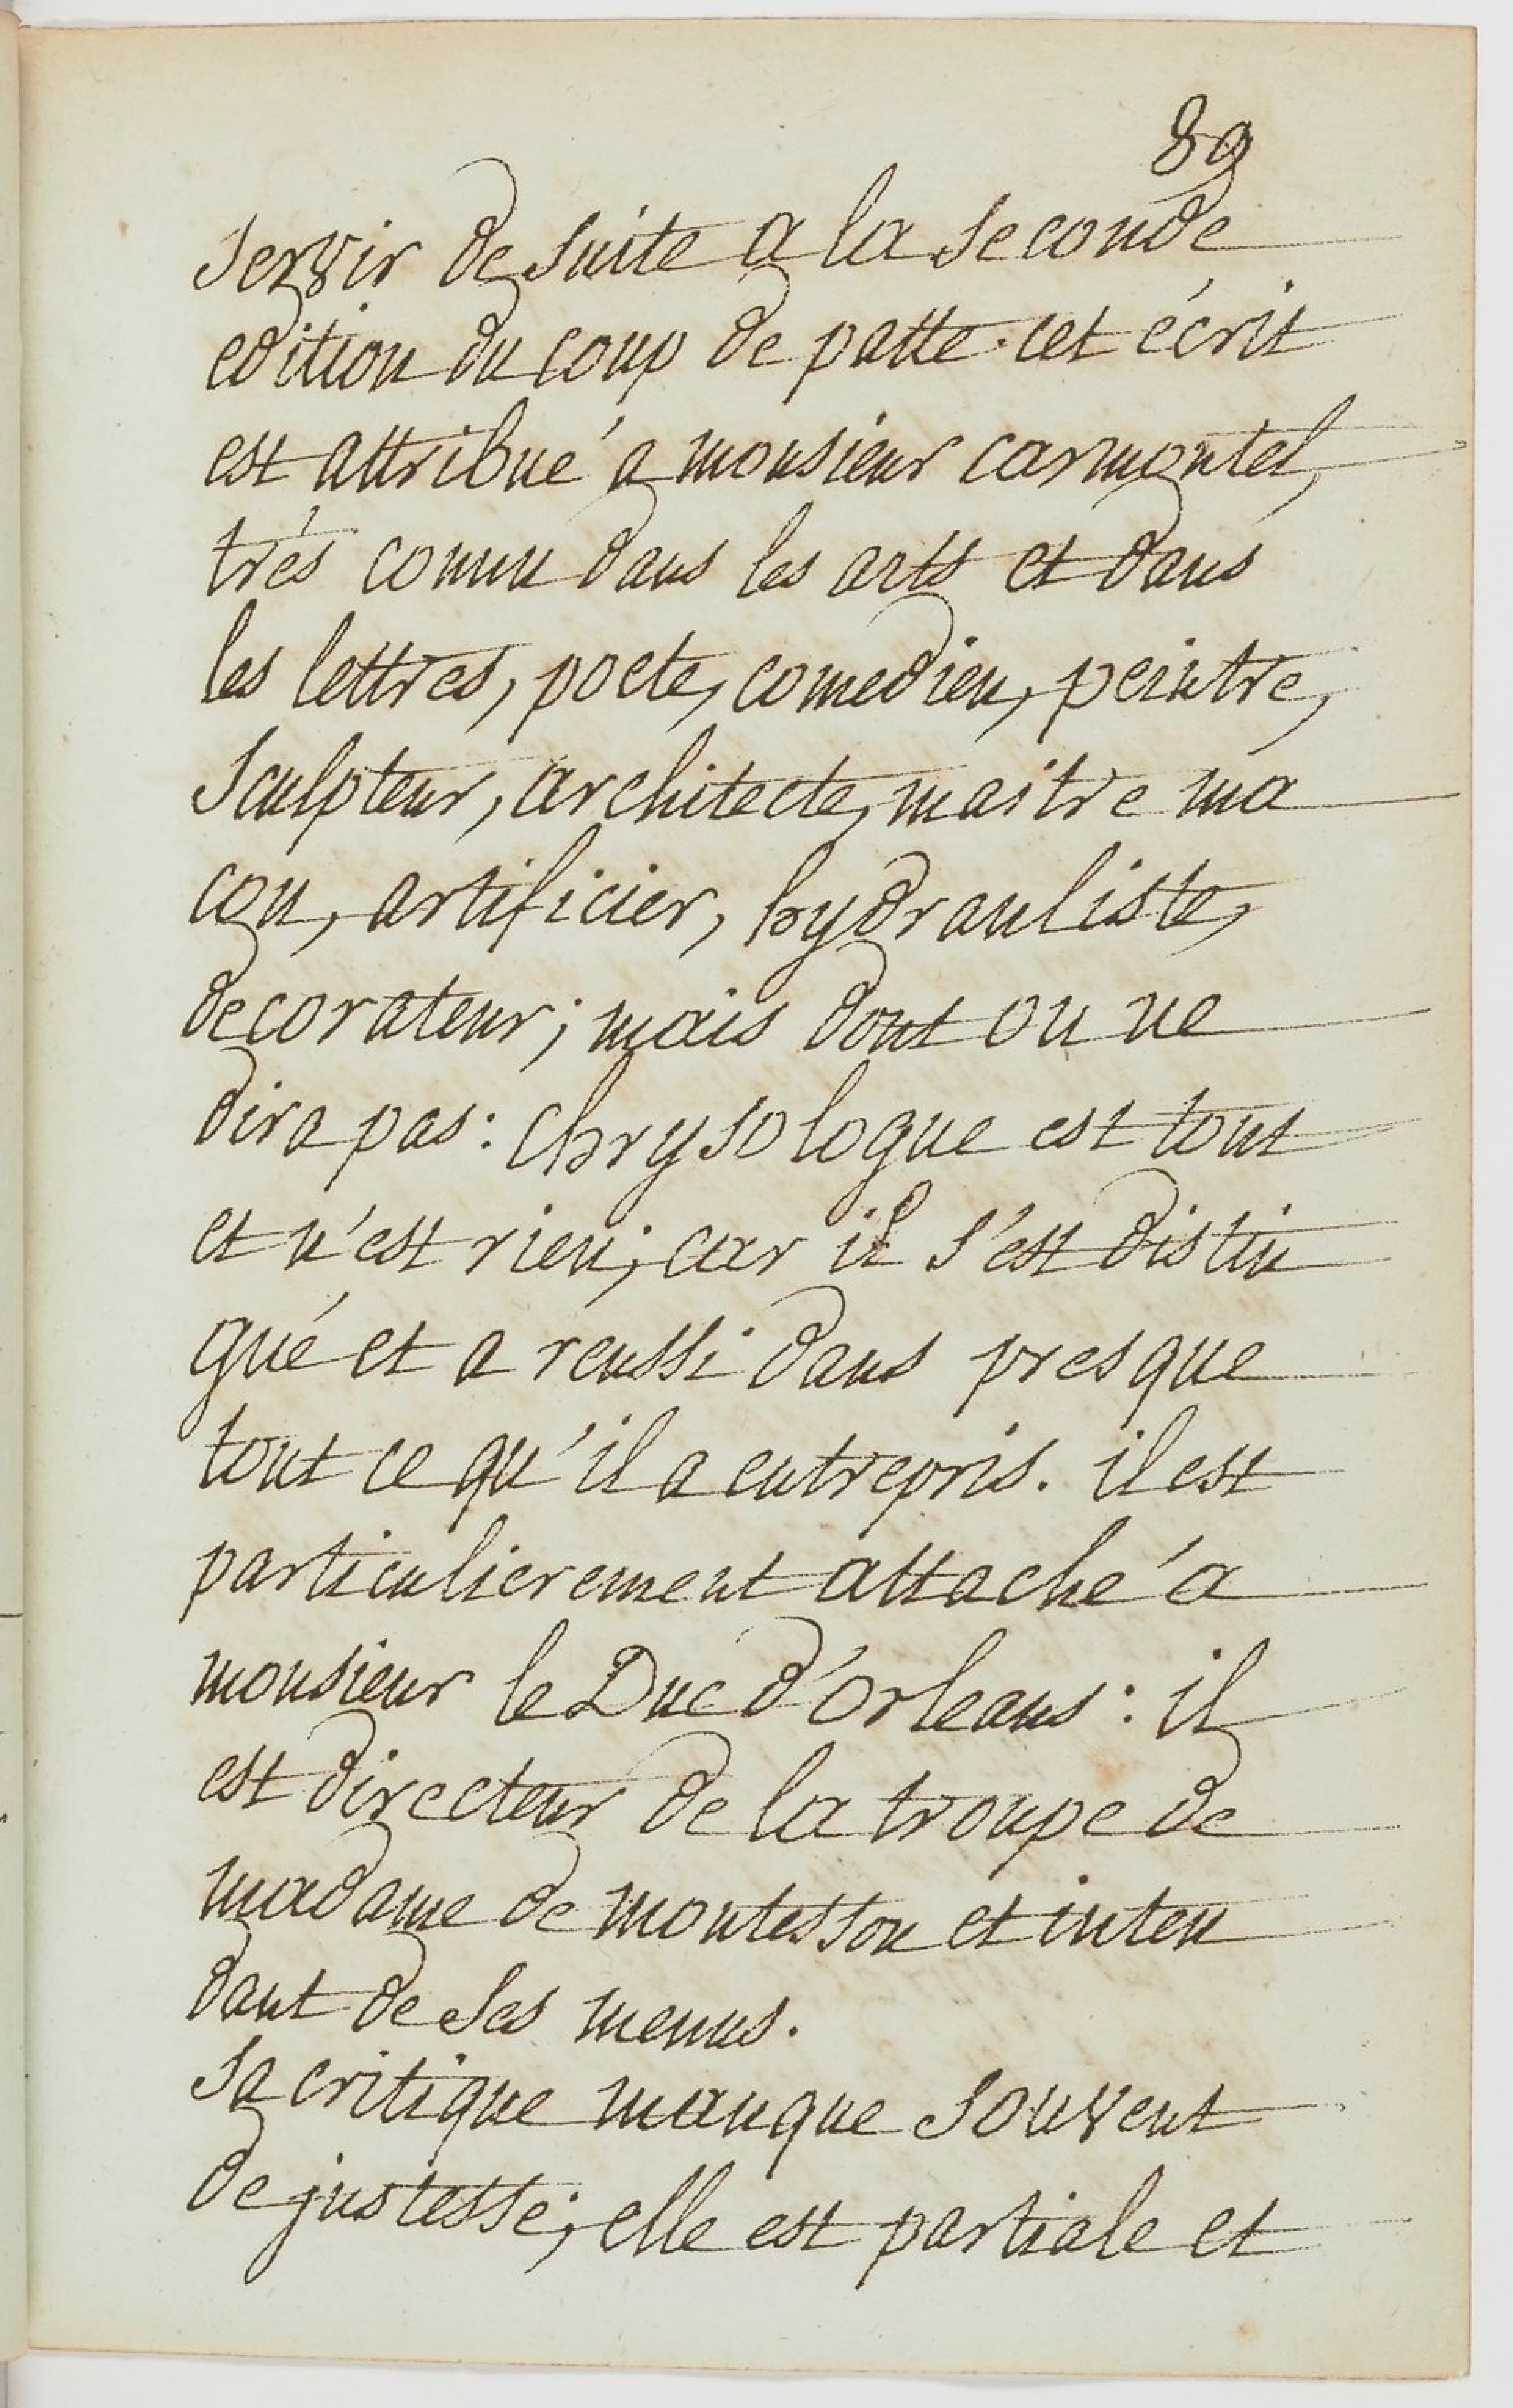 89
servir de suite a la seconde
edition du coup de patte. cet écrit
est attribué a monsieur carmontel,
trés connu dans les arts et dans
les lettres, poete, comedien, peintre,
sculpteur, architecte, maitre ma
con, artificier, hydrauliste,
decorateur; mais dont on ne
dira pas: chrysologue est tout
et n'est rien; car il s'est distin
gué et a reussi dans presque
tout ce qu'il a entrepris. il est
particulierement attaché a
monsieur le Duc d'Orleans: il
est directeur de la troupe de
madame de montesson et inten
dant de ses menus.
sa critique manque souvent
de justesse; elle est partiale et